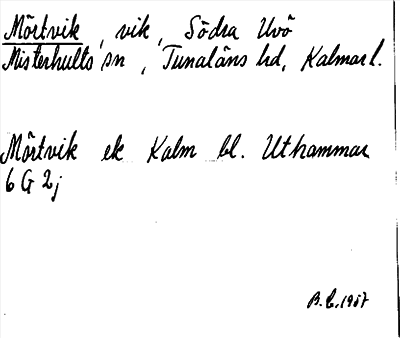 Mörtvik, vik, Södra Uvö
Misterhults sn, Tunaläns hd, Kalmar l.
Mörtvik ek Kalm bl. Uthammar
6 G 2j
B.L. 1987